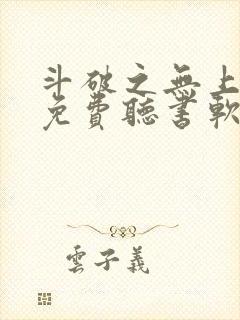 斗破之無上
免費聽書軟
雲子義